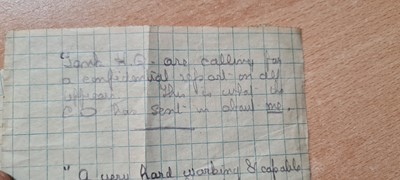 "Tank H.Q. are calling for
a confidential report on all
officers. This is what the
C.O has sent in about me.
"A very hard working & capable